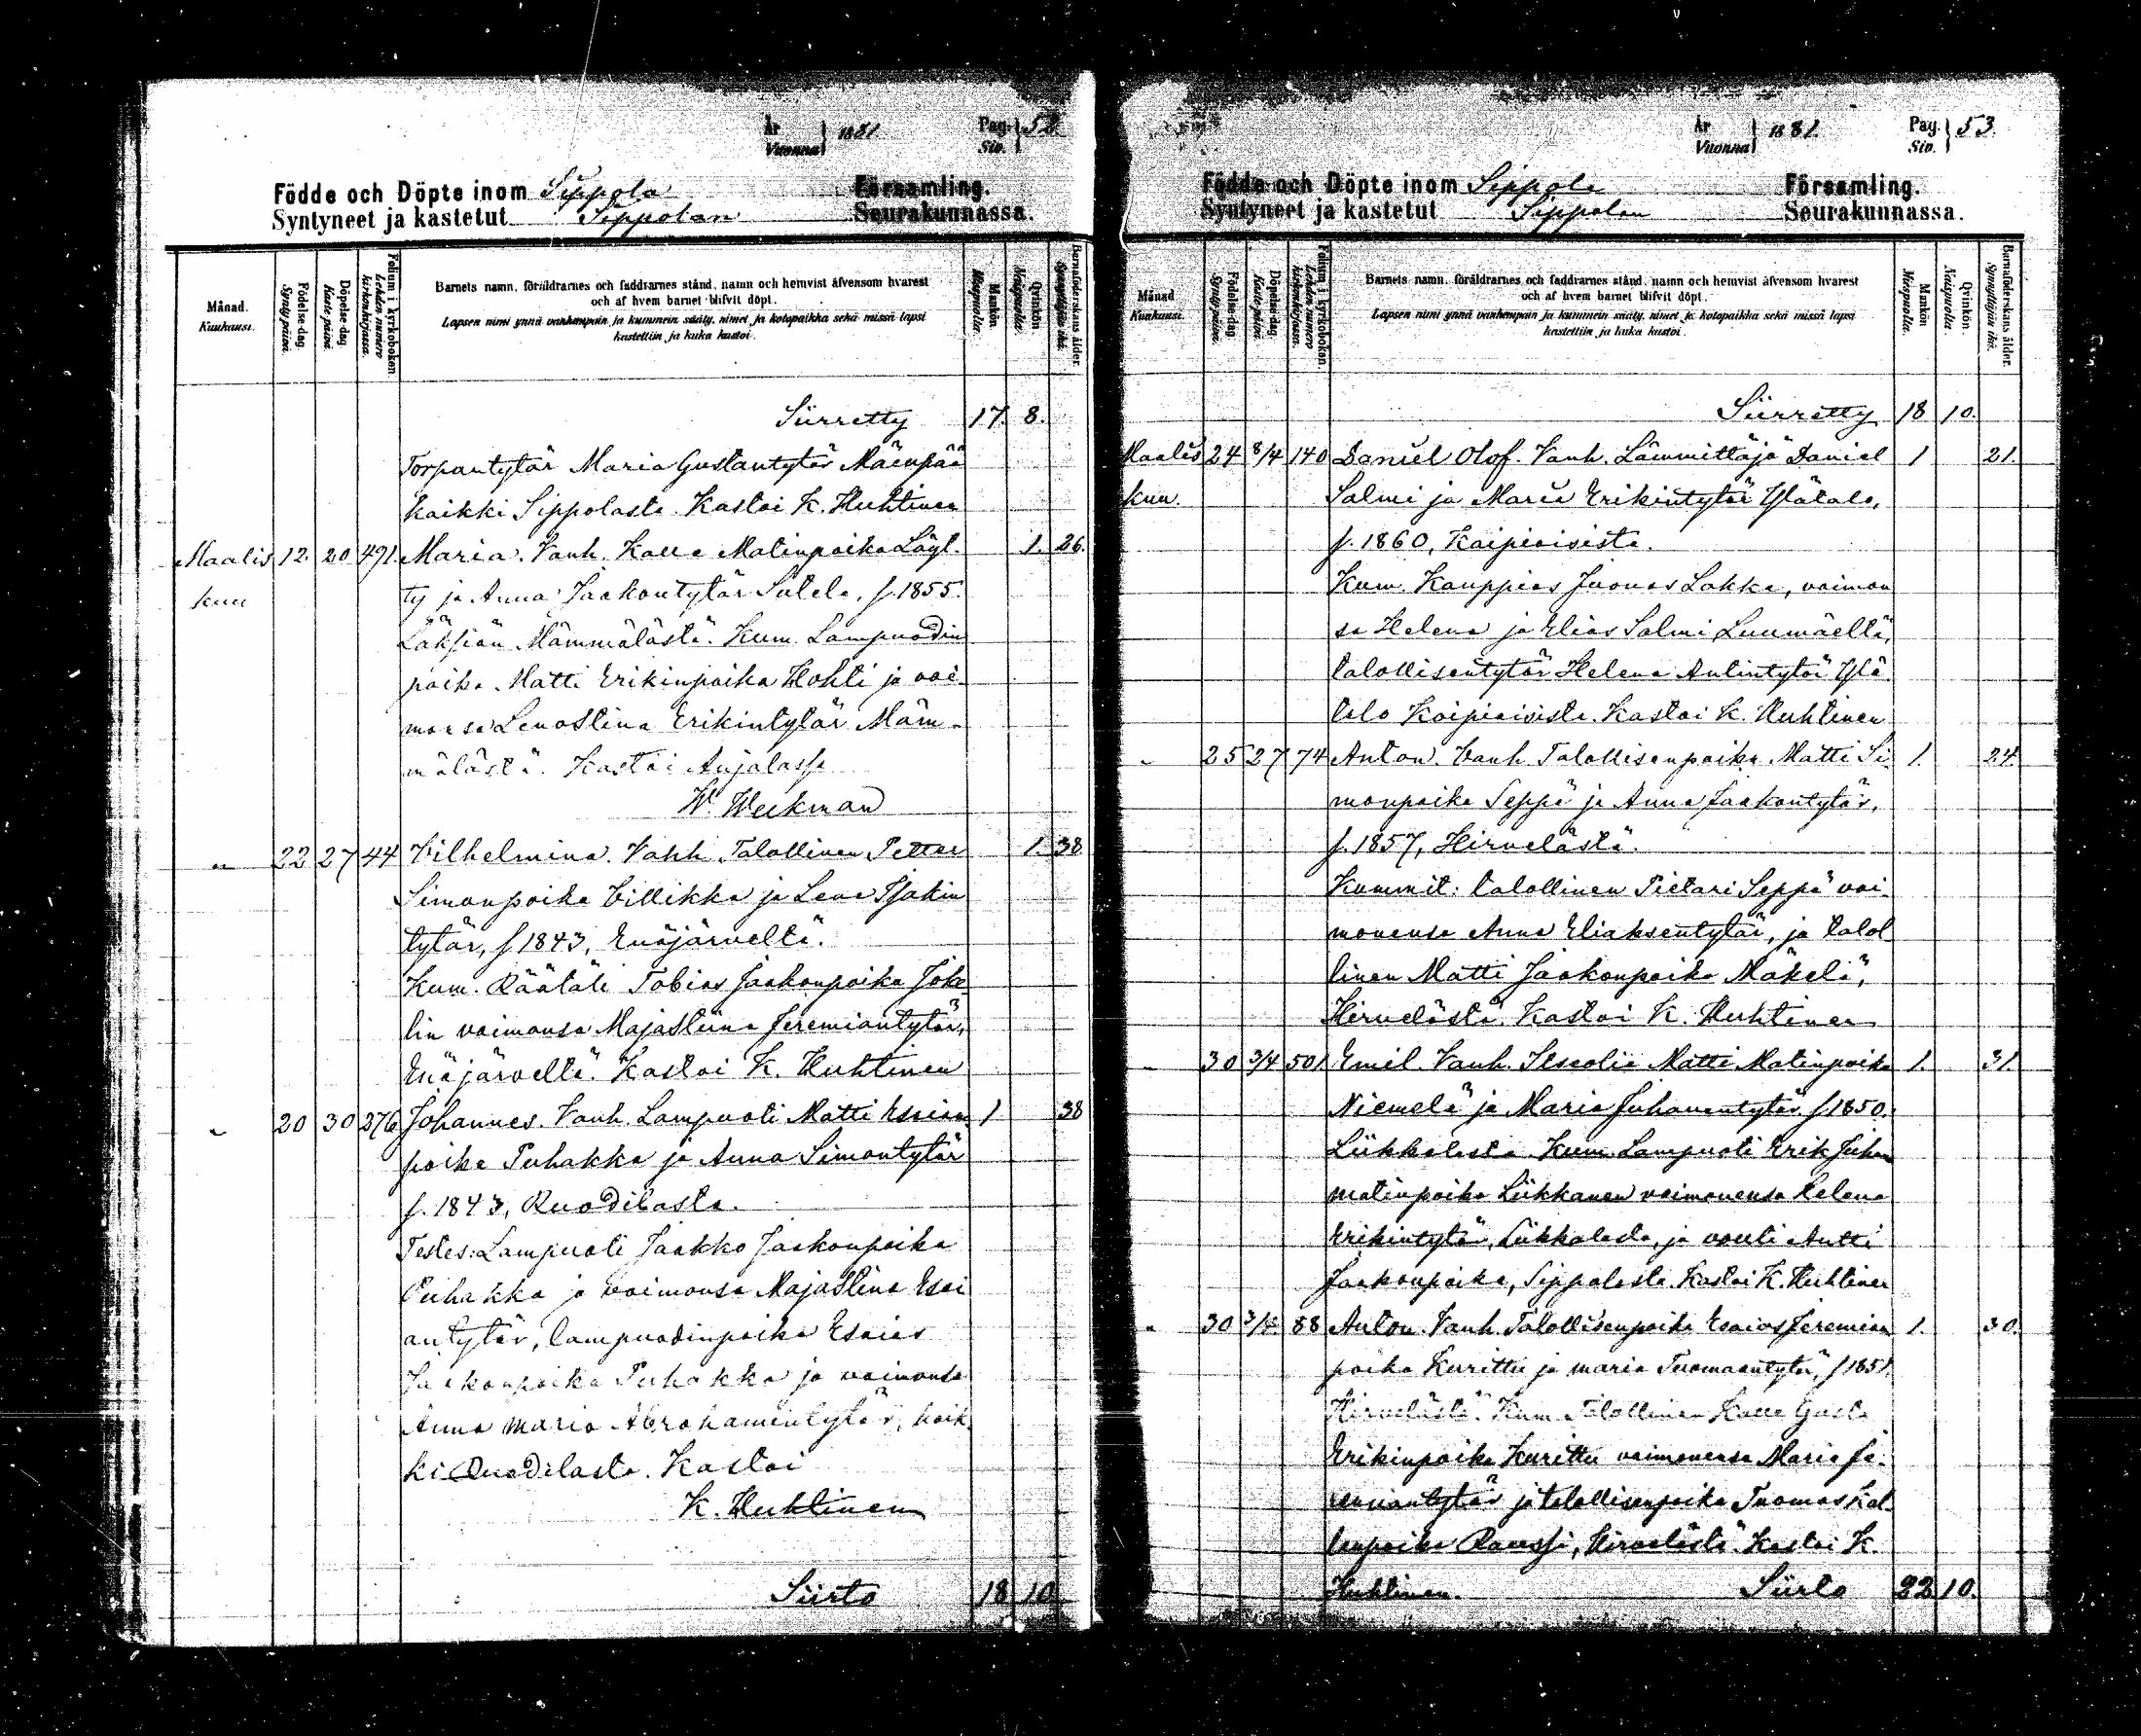 År
Vuonna 1881
Pag.
Siv. 52.
Födde och Döpte inom Sippola Församling.
Syntyneet ja kastetut Sippolan Seurakunnassa.
Månad.
Kuukausi.
Födelse-dag.
Synty päivä.
Döpelse-dag.
Kaste päivä.
Folium i kyrkoboken.
Lehden numero
kirkonkirjassa.
Barnets namn, föräldrarnes och faddrarnes stånd, namn och hemvist äfvensom hvarest
och af hvem barnet blifvit döpt.
Lapsen nimi ynnä vanhempain ja kummein sääty, nimet ja kotopaikka sekä missä lapsi
kastettiin ja kuka kastoi.
Mankön.
Miespuolta.
Qvinkön.
Naispuolta.
Barnaföderskans ålder.
Synnyttäjän ikä.
Siirretty 17. 8.
Torpantytär Maria Gustantytär Mäenpää
kaikki Sippolasta. Kastoi K. Huhtinen
Maalis 12. 20 491. Maria. Vanh. Kalle Matinpoika Löyt- 1. 26.
kuu ty ja Anna Jaakontytär Sutela, s. 1855.
Mämmälästä. Kum. Lampuodin
poika Matti Erikinpoika Hohti ja vai-
monsa Lenastina Erikintytär Mäm-
mälästä. Kastoi Anjalassa
W. Weckman
" 22 27 44 Vilhelmina. Vanh. Talollinen Petter 1. 38
Simonpoika Villikka ja Lena Isakin
tytär, s 1843, Enäjärveltä.
Kum. Räätäli Tobias Jaakonpoika Joke
lin vaimonsa Majastiina Jeremiantytär,
Enäjärveltä. Kastoi K. Huhtinen
" 20 30 276 Johannes. Vanh. Lampuoti Matti Esaian 1 38
poika Puhakka ja Anna Simontytär
s. 1843, Ruodilasta.
Testes: Lampuoti Jaakko Jaakonpoika
Puhakka ja vaimonsa Majastina Esai
antytär, lampuodinpoika Esaias
Jaakonpoika Puhakka ja vaimonsa
Anna Maria Abrahamintytär, kaik
ki Ruodilasta. Kastoi
K. Huhtinen
Siirto 18 10
År
Vuonna 1881.
Pag.
Siv. 53.
Födde och Döpte inom Sippola Församling.
Syntyneet ja kastetut Sippolan Seurakunnassa.
Månad
Kuukausi.
Födelse-dag
Synty päivä.
Döpelse-dag.
Kaste päivä.
Folium i kyrkoboken.
Lehden numero
kirkonkirjassa.
Barnets namn, föräldrarnes och faddrarnes stånd, namn och hemvist äfvensom hvarest
och af hvem barnet blifvit döpt.
Lapsen nimi ynnä vanhempain ja kummein sääty, nimet ja kotopaikka sekä missä lapsi
kastettiin ja kuka kastoi.
Mankön
Miespuolta.
Qvinkön.
Naispuolta.
Barnaföderskans ålder.
Synnyttäjän ikä.
Siirretty 18 10.
Maalis 24 8/4 140 Daniel Olof. Vanh. Lämmittäjä Daniel 1 21.
kuu. Salmi ja Maria Erikintytär Ylätalo,
s. 1860, Kaipiaisista.
Kum. Kauppias Juonas Lakka, vaimon
sa Helena ja Elias Salmi Luumäeltä,
talollisentytär Helena Antintytär Ylä
talo Kaipiaisista. Kastoi K. Huhtinen
" 25 27 74 Anton. Vanh. Talollisenpoika Matti Si 1. 24.
monpoika Seppä ja Anna Jaakontytär,
s. 1857, Hirvelästä.
Kummit: talollinen Pietari Seppä vai
monensa Anna Eliaksentytär, ja talol
linen Matti Jaakonpoika Mäkelä,
Hirvelästä. Kastoi K. Huhtinen
" 30 3/4 501 Emil. Vanh. Itsellis Matti Matinpoika 1. 31.
Niemelä ja Maria Juhanantytär s. 1850.
Liikkalasta. Kum. Lampuoti Erik Juhan
matinpoika Liikkanen vaimonensa Helena
Erikintytär, Liikkalasta, ja vouti Antti
Jaakonpoika, Sippolasta. Kastoi K. Huhtinen
" 30 3/4 88 Anton. Vanh. Talollisenpoika Esaias Jeremian 1. 30.
poika Kurittu ja Maria Tuomaantytär, s 1851.
Hirvelästä. Kum. Talollinen Kalle Gusta
Erikinpoika Kurittu vaimonensa Maria Je-
remiantytär ja talollisenpoika Tuomas Kal
lenpoika Raussi, Hirvelästä. Kastoi K.
Huhtinen. Siirto 22 10.